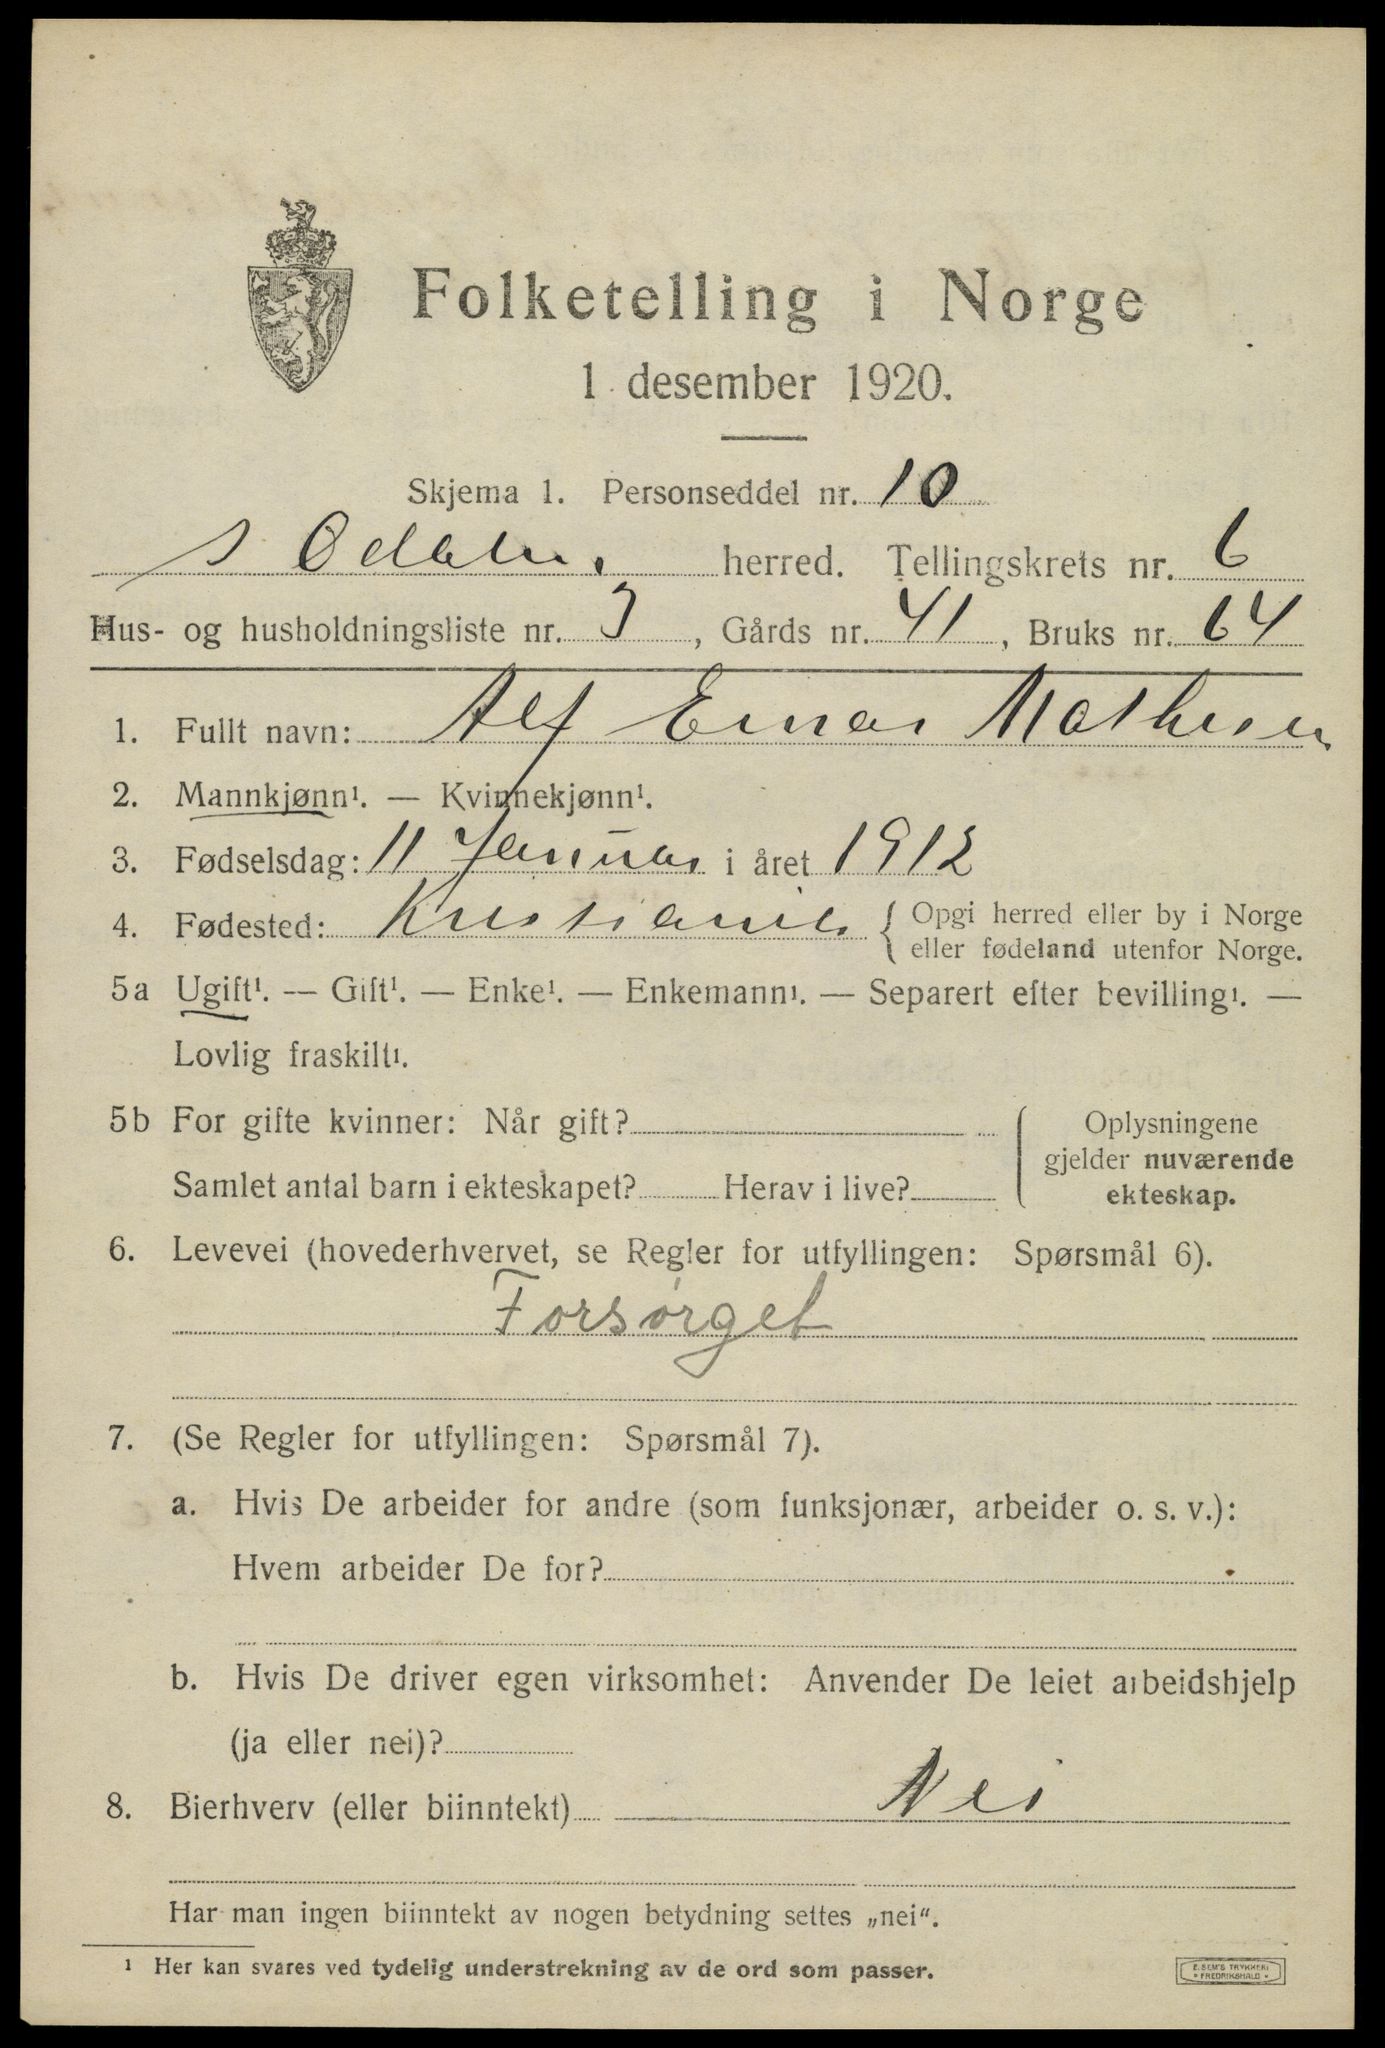 Folketelling i Norge
1 desember 1920.
Skjema 1. Personseddel nr. 10
S Odalen herred. Tellingskrets nr. 6
Hus- og husholdningsliste nr. 3, Gårds nr. 41, Bruks nr. 64
1. Fullt navn: Alf Einar Mathisen
2. Mannkjønn¹. — Kvinnekjønn¹.
3. Fødselsdag: 11 Januar i året 1912
4. Fødested: Kristiania { Opgi herred eller by i Norge
eller fødeland utenfor Norge.
5a Ugift¹. — Gift¹. — Enke¹. — Enkemann¹. — Separert efter bevilling¹. —
Lovlig fraskilt¹.
5b For gifte kvinner: Når gift?
Samlet antal barn i ekteskapet? Herav i live?
Oplysningene
gjelder nuværende
ekteskap.
6. Levevei (hovederhvervet, se Regler for utfyllingen: Spørsmål 6).
Forsørget
7. (Se Regler for utfyllingen: Spørsmål 7).
a. Hvis De arbeider for andre (som funksjonær, arbeider o. s. v.):
Hvem arbeider De for?
b. Hvis De driver egen virksomhet: Anvender De leiet arbeidshjelp
(ja eller nei)?
8. Bierhverv (eller biinntekt) Nei
Har man ingen biinntekt av nogen betydning settes „nei“.
¹ Her kan svares ved tydelig understrekning av de ord som passer.
E. SEM'S TRYKKERI
FREDRIKSHALD